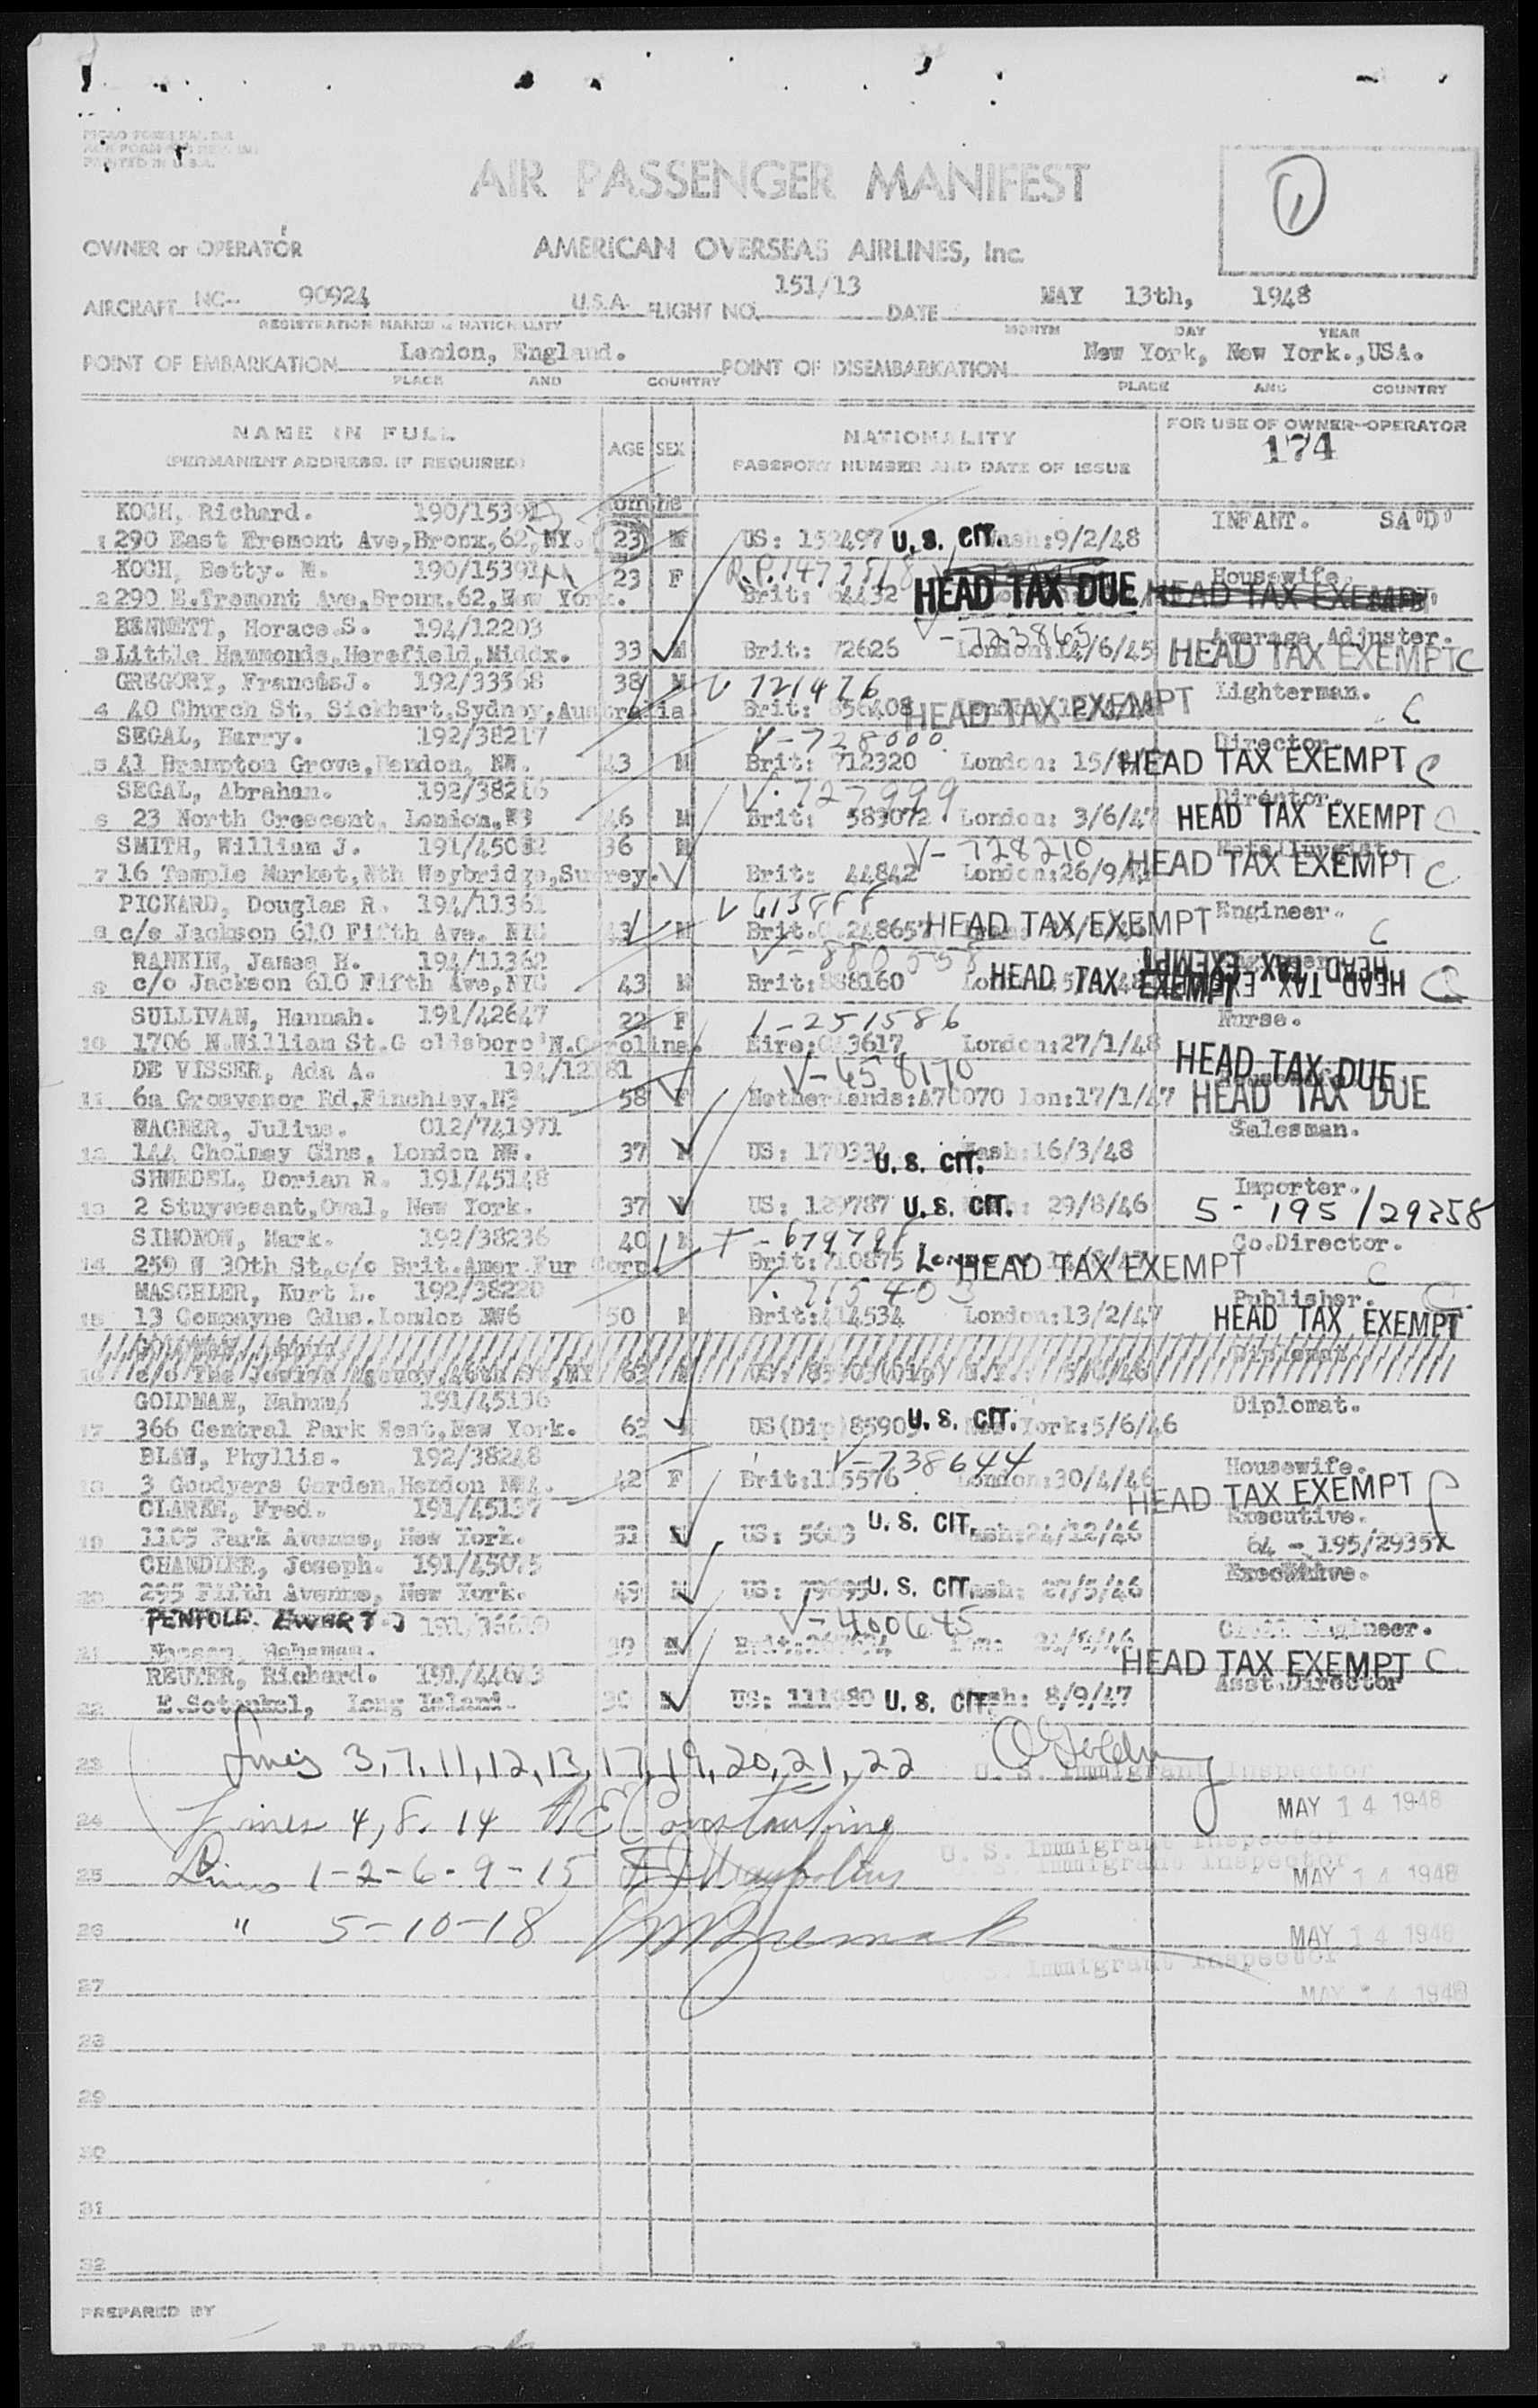 AIR PASSENGER MANIFEST
1
OWNER or OPERATOR AMERICAN OVERSEAS AIRLINES, Inc.
AIRCRAFT NC-- 90924 U.S.A. FLIGHT NO. 151/13 DATE MAY 13th, 1948
REGISTRATION MARKS & NATIONALITY MONTH DAY YEAR
POINT OF EMBARKATION London, England. POINT OF DISEMBARKATION New York, New York.,USA.
PLACE AND COUNTRY PLACE AND COUNTRY
NAME IN FULL AGE SEX NATIONALITY FOR USE OF OWNER-OPERATOR
(PERMANENT ADDRESS, IF REQUIRED) PASSPORT NUMBER AND DATE OF ISSUE 174
KOCH, Richard. months INFANT. SA"D"
1 290 East Tremont Ave,Bronx,62, NY. 23 M US: 152497 U.S. CIT. Wash:9/2/48
KOCH, Betty. M. 190/15391 23 F R.P.1477518 Housewife.
2 290 E.Tremont Ave,Bronx.62,New York. Brit: 64432 HEAD TAX DUE HEAD TAX EXEMPT
BENNETT, Horace.S. 194/12203 V-723865 Average Adjuster.
3 Little Hammonds,Harefield,Middx. 33 M Brit: 72626 London:14/6/45 HEAD TAX EXEMPT C
GREGORY, FrancisJ. 192/33568 38 M V 721476 Lighterman.
4 40 Church St, Sydney,Australia. Brit: 856408 HEAD TAX EXEMPT C
SEGAL, Harry. 192/38217 V-728000 Director.
5 41 Brampton Grove,Hendon, NW. 43 M Brit: 712320 London: 15/ HEAD TAX EXEMPT C
SEGAL, Abraham. 192/38216 V.727999 Director.
6 23 North Crescent, London,N3 46 M Brit: 583072 London: 3/6/47 HEAD TAX EXEMPT C
SMITH, William J. 36 M V-728210
7 16 Temple Market,Nth Weybridge,Surrey. Brit: 44842 London:26/9/ HEAD TAX EXEMPT C
PICKARD, Douglas R. 194/11361 V 613888 Engineer.
8 c/o Jackson 610 Fifth Ave. NYC 43 M Brit. HEAD TAX EXEMPT C
RANKIN, James H. 194/11362 V-880558 HEAD TAX EXEMPT
9 c/o Jackson 610 Fifth Ave,NYC 43 M Brit:888160 HEAD TAX EXEMPT HEAD TAX EXEMPT C
SULLIVAN, Hannah. 191/42647 22 F 1-251586 Nurse.
10 1706 N.William St.Goldsboro'N.Carolina. Eire: London:27/1/48 HEAD TAX DUE
DE VISSER, Ada A. 194/12181 V-458170
11 6a Grosvenor Rd,Finchley,N3 58 F Netherlands:A70070 Lon:17/1/47 HEAD TAX DUE
WAGNER, Julius. 012/741971 Salesman.
12 144 Cholmey Gdns, London NW. 37 M US: 170334 U.S. CIT. Wash:16/3/48
SHWEDEL, Dorian R. 191/45148 Importer.
13 2 Stuyvesant,Oval, New York. 37 US: 129787 U.S. CIT. 29/8/46 5-195/29358
SIMONOW, Mark. 192/38236 40 M T-679798 Co.Director.
14 259 W 30th St,c/o Brit.Amer Fur Corp. Brit:710875 HEAD TAX EXEMPT C
MASCHLER, Kurt L. 192/38220 V.715403 Publisher. C
15 13 Compayne Gdns.London NW6 50 M Brit:414534 London:13/2/47 HEAD TAX EXEMPT
16 c/o The Jewish Agency,46th St,NY 63 M Diplomat
GOLDMAN, Nahum 191/45136 Diplomat.
17 366 Central Park West,New York. 63 M US(Dip)85903 U.S. CIT. New York:5/6/46
BLAW, Phyllis. 192/38248 V-738644 Housewife.
18 3 Goodyers Garden,Hendon NW4. 42 F Brit:115576 London:30/4/46 HEAD TAX EXEMPT C
CLARKE, Fred. 191/45137 Executive.
19 1105 Park Avenue, New York. 53 M US: U.S. CIT. Wash:24/12/46 64-195/29352
CHANDLER, Joseph. 191/45045 Executive.
20 295 Fifth Avenue, New York. 49 M US: 79895 U.S. CIT. Wash: 27/5/46
PENFOLD. EWART J V-400645 Civil Engineer.
21 39 M Brit: HEAD TAX EXEMPT C
REUTER, Richard. 191/44643 Asst.Director
22 E.Setauket, Long Island. 30 M US: 111080 U.S. CIT. Wash: 8/9/47
23 Lines 3,7,11,12,13,17,19,20,21,22 U. S. Immigrant Inspector
24 Lines 4,8.14 A E Constantine MAY 14 1948
U. S. Immigrant Inspector
25 Lines 1-2-6-9-15 MAY 14 1948
26 " 5-10-18 MAY 14 1948
U. S. Immigrant Inspector
27 MAY 14 1948
28
29
30
31
32
PREPARED BY